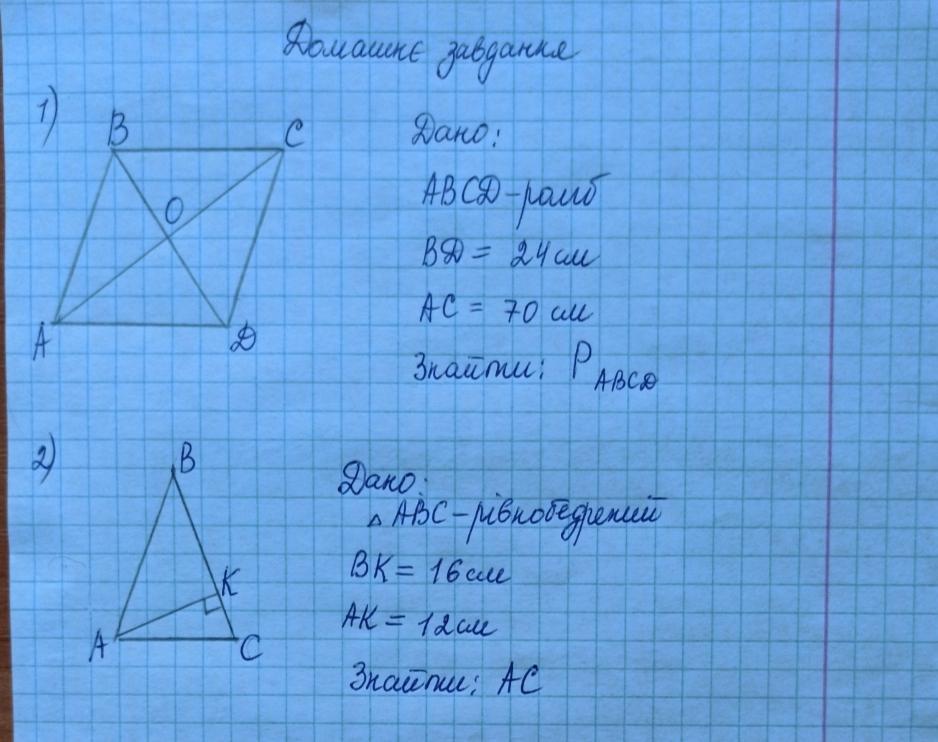 Домашнє завдання
1)
B C
O
A D
Дано:
ABCD - ромб
BD = 24 см
AC = 70 см
Знайти: P ABCD
2)
B
K
A C
Дано:
△ ABC - рівнобедрений
BK = 16 см
AK = 12 см
Знайти: AC